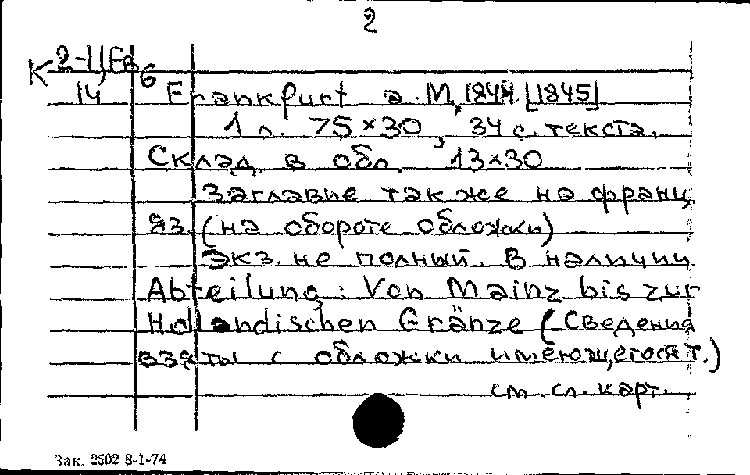 2
К 2-11/Ев
14 6
Frankfurt a. M, 1844. [1845]
1 л. 75×30, 34 с. текста.
Склад. в обл. 13×30
Заглавие также на франц.
яз. (на обороте обложки)
Экз. не полный. В наличии
Abteilung: Von Mainz bis zur
Hollandischen Gränze (Сведения
взяты с обложки имеющегося т.)
см. сл. карт.
Зак. 2502 8-1-74